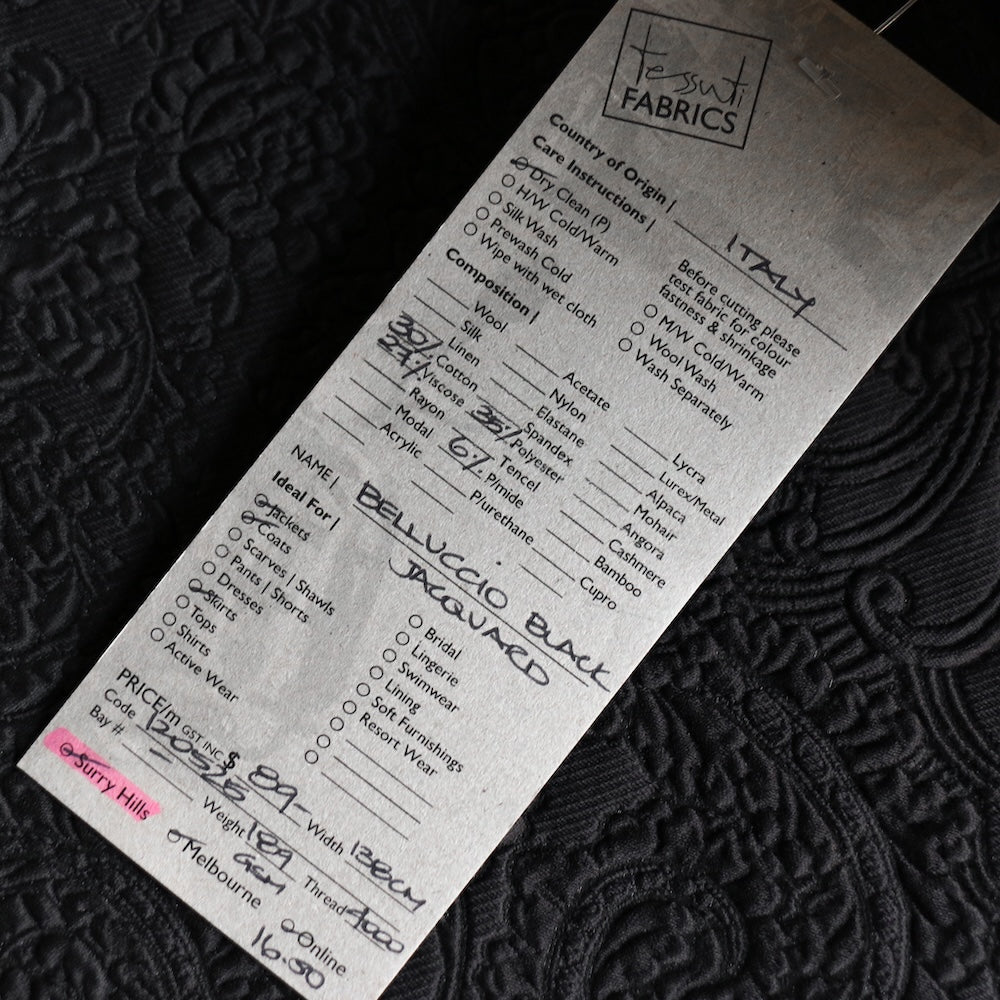 tessuti
FABRICS
Country of Origin | ITALY
Care Instructions |
Dry Clean (P)
H/W Cold/Warm
Silk Wash
Prewash Cold
Wipe with wet cloth
Before cutting please
test fabric for colour
fastness & shrinkage
M/W Cold/Warm
Wool Wash
Wash Separately
Composition |
Wool
Silk
Linen
30% Cotton
Viscose
Rayon
Modal
Acrylic
Acetate
Nylon
Elastane
Spandex
Polyester
6% Tencel
P/mide
P/urethane
Lycra
Lurex/Metal
Alpaca
Mohair
Angora
Cashmere
Bamboo
Cupro
NAME | BELLUCCIO BLACK
JACQUARD
Ideal For |
Jackets
Coats
Scarves | Shawls
Pants | Shorts
Dresses
Skirts
Tops
Shirts
Active Wear
Bridal
Lingerie
Swimwear
Lining
Soft Furnishings
Resort Wear
PRICE/m GST INC $ 89-
Width 138CM
Code
Bay #
Weight 189
GSM
Thread 4000
Surry Hills
Melbourne
Online
16.50